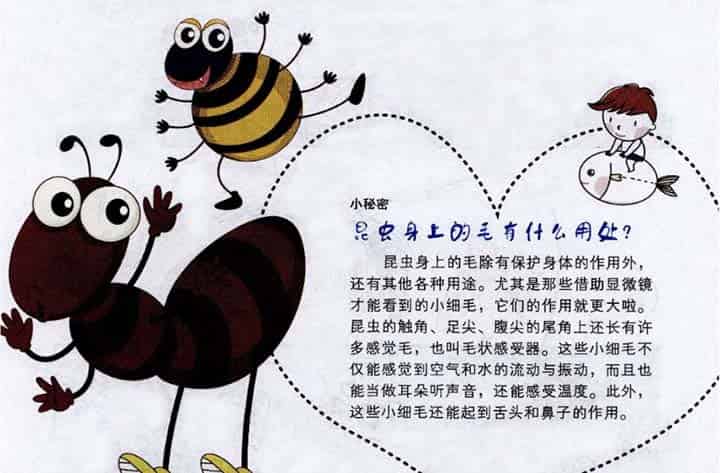 小秘密
昆虫身上的毛有什么用处?
昆虫身上的毛除有保护身体的作用外,
还有其他各种用途。尤其是那些借助显微镜
才能看到的小细毛,它们的作用就更大啦。
昆虫的触角、足尖、腹尖的尾角上还长有许
多感觉毛,也叫毛状感受器。这些小细毛不
仅能感觉到空气和水的流动与振动,而且也
能当做耳朵听声音,还能感受温度。此外,
这些小细毛还能起到舌头和鼻子的作用。